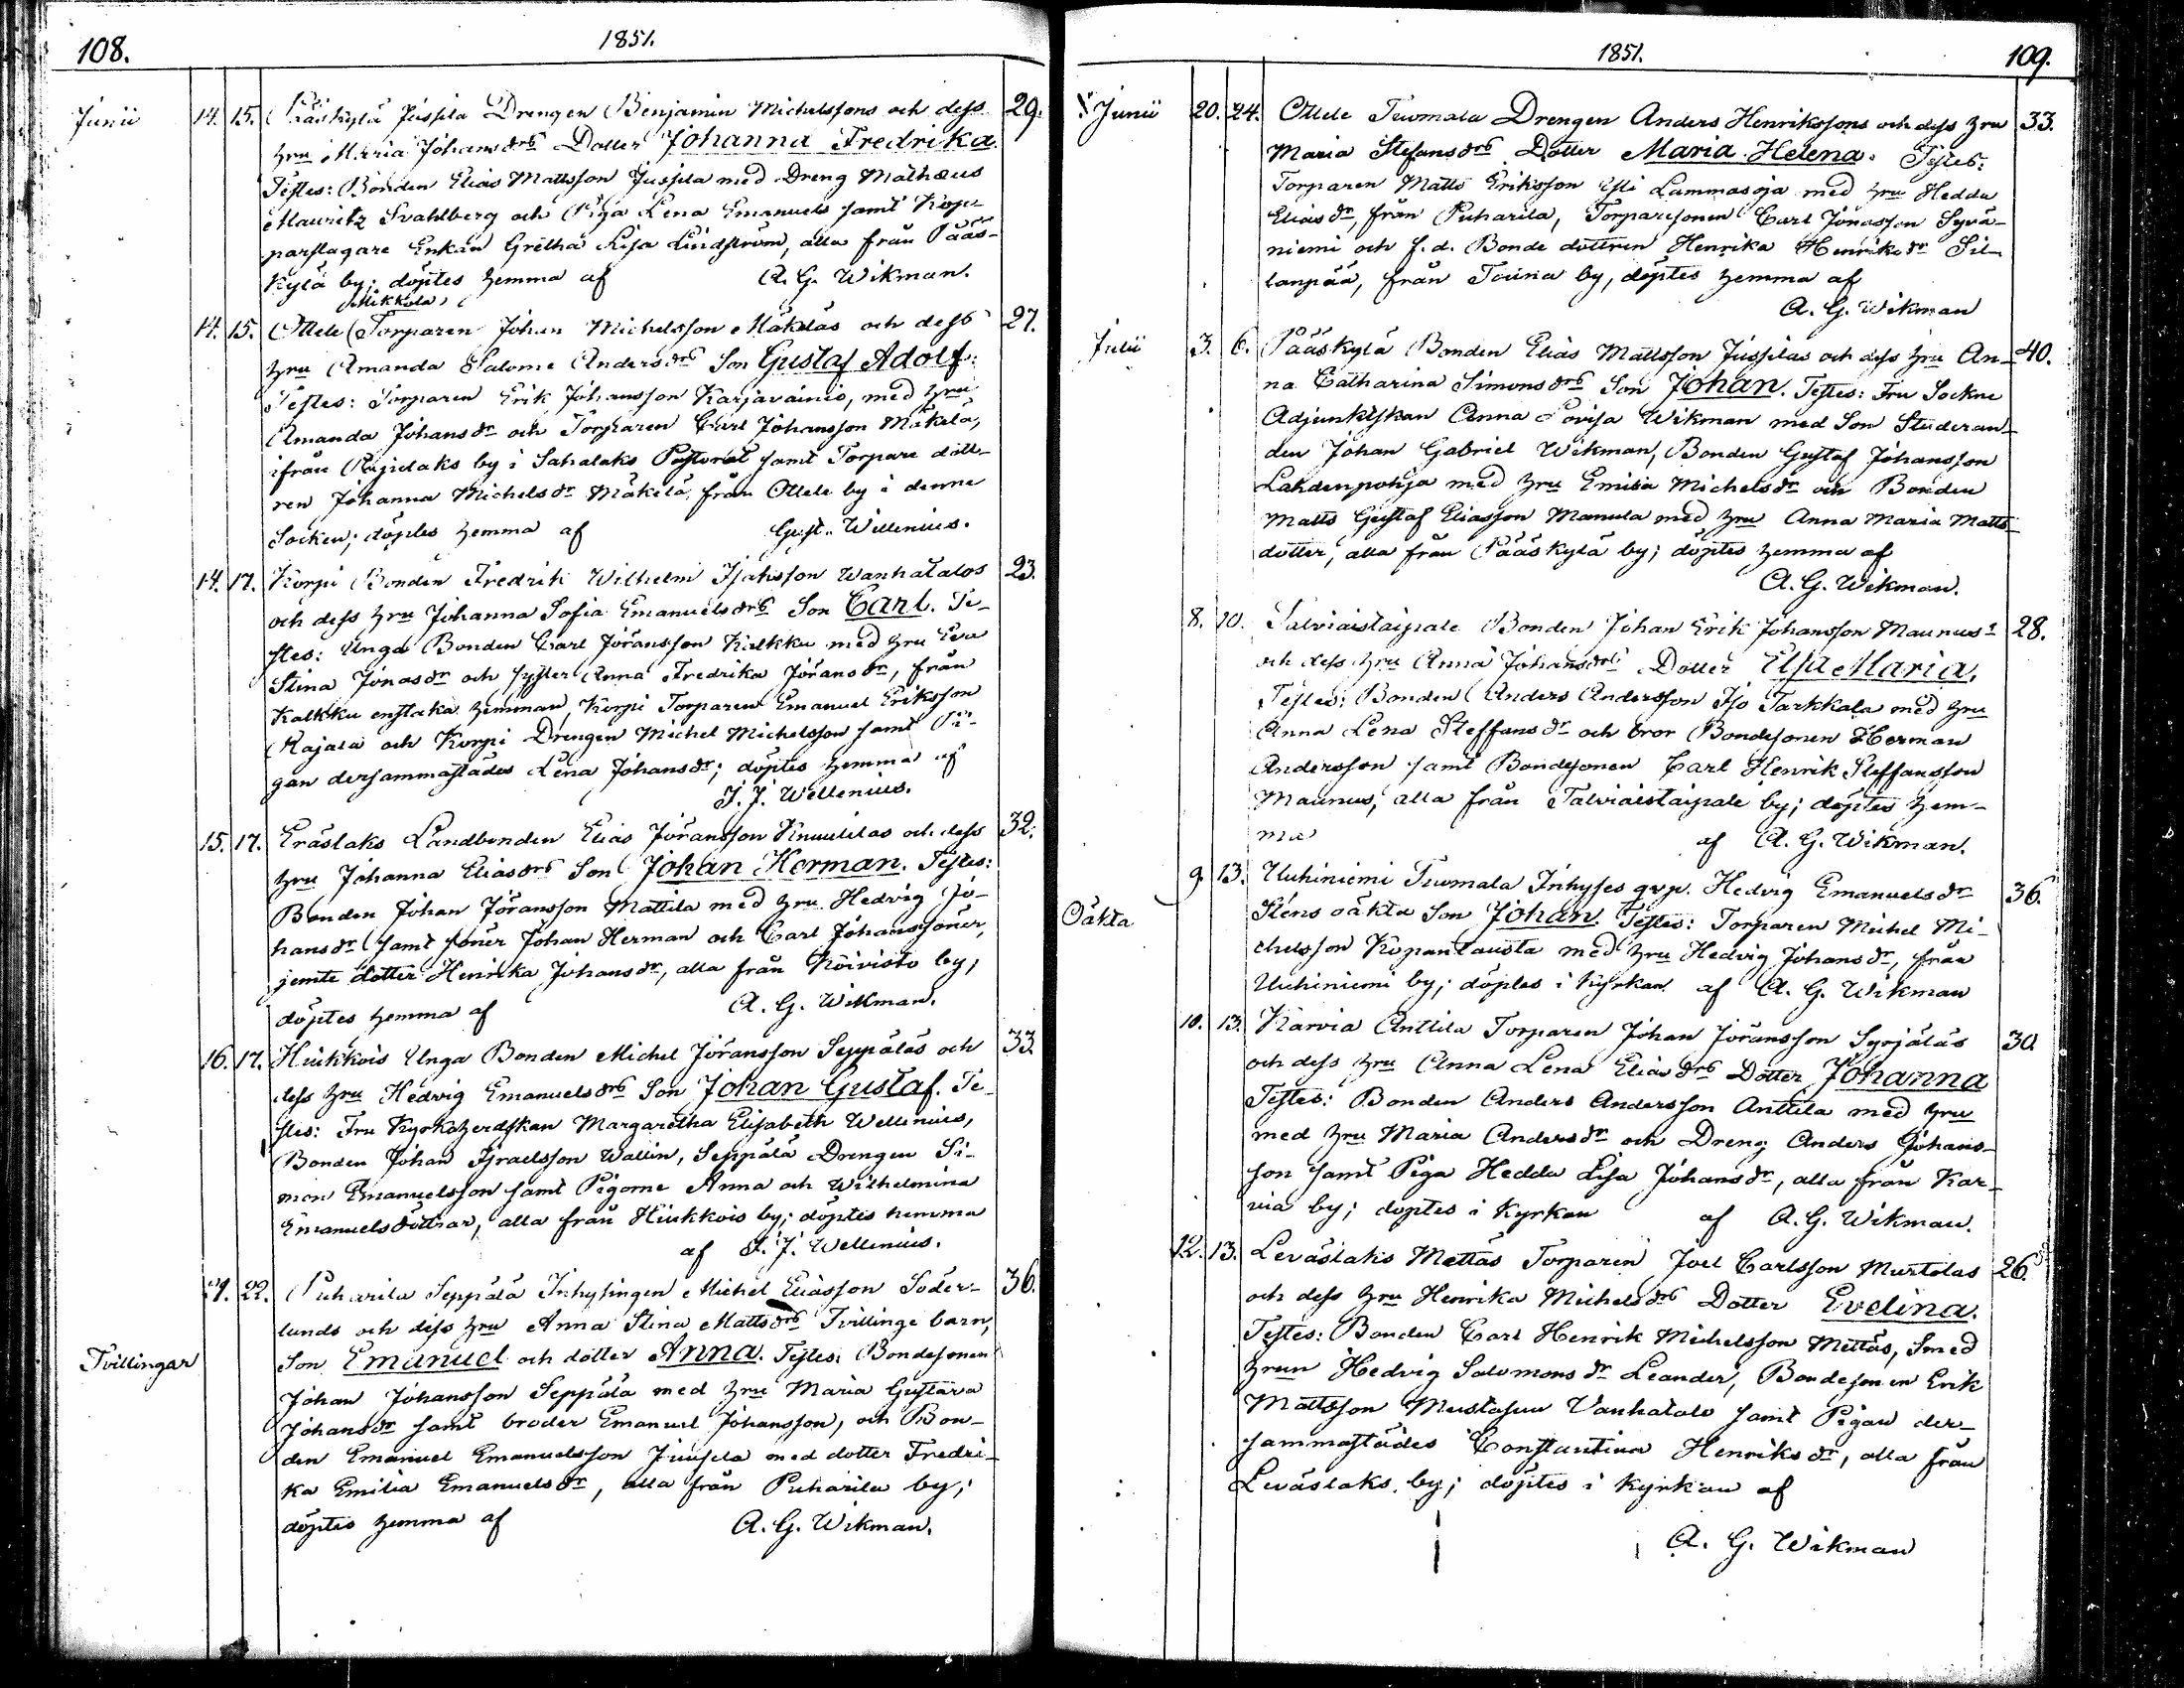 108.
1851.
Junii
14. 15. Pääskylä Jussila Drengen Benjamin Michelssons och dess 29.
hru Maria Johansdrs Dotter Johanna Fredrika.
Testes: Bonden Elias Mattsson Jussila med Dreng Mathæus
Mauritz Svahlberg och Piga Lena Emanuels samt Kopparslagare
Enkan Gretha Lisa Lindström, alla från Pääs-
kylä by; döptes hemma af A. G. Wikman.
Mikkola,
14. 15. Ottele Torparen Johan Michelsson Mäkeläs och dess 27.
hru Amanda Salome Andersdrs Son Gustaf Adolf.
Testes: Torparen Erik Johansson Karjavainio, med hru
Amanda Johansdr och Torparen Carl Johansson Mäkelä,
ifrån by i Sahalaks Pastorat samt Torpare dott-
ren Johanna Michelsdr Mäkelä, från Ottele by i denne
Socken; döptes hemma af Gust. Wellenius.
14. 17. Korpi Bonden Fredrik Wilhelm Isaksson Wanhatalos 23.
och dess hru Johanna Sofia Emanuelsdrs Son Carl. Te-
stes: Unga Bonden Carl Jöransson Kalkku med hru Eva
Stina Jonasdr och syster Anna Fredrika Jöransdr, från
Kalkku enstaka hemman, Korpi Torparen Emanuel Eriksson
Rajala och Korpi Drengen Michel Michelsson samt Pi-
gan dersammastädes Lena Johansdr; döptes hemma af
J. J. Wellenius.
15. 17. Eräslaks Landbonden Elias Jöransson Knuutilas och dess 32.
hru Johanna Eliasdrs Son Johan Herman. Testes:
Bonden Johan Jöransson Mattila med hru Hedvig Jo-
hansdr samt söner Johan Herman och Carl Johanssöner,
jemte dotter Henrika Johansdr, alla från Koivisto by;
döptes hemma af A. G. Wikman.
16. 17. Huikkois Unga Bonden Michel Jöransson Seppäläs och 33.
dess hru Hedvig Emanuelsdrs Son Johan Gustaf. Te-
stes: Fru Kyrkoherdskan Margaretha Elisabeth Wellenius,
Bonden Johan Israelsson Wallin, Seppälä Drengen Si-
mon Emanuelsson samt Pigorne Anna och Wilhelmina
Emanuelsdöttrar, alla från Huikkois by; döptes hemma
af J. J. Wellenius.
21. 22. Puharila Seppälä Inhysingen Michel Eliasson Söder- 36.
lunds och dess hru Anna Stina Mattsdrs Tvillinge barn,
Tvillingar
Son Emanuel och dotter Anna. Testes: Bondesonen
Johan Johansson Seppälä med hru Maria Gustava
Johansdr samt broder Emanuel Johansson, och Bon-
den Emanuel Emanuelsson Juusela med dotter Fredri-
ka Emilia Emanuelsdr, alla från Puharila by;
döptes hemma af A. G. Wikman.
1851.
109.
Junii 20. 24. Ottele Tuomala Drengen Anders Henrikssons och dess hru 33.
Maria Stefansdrs Dotter Maria Helena. Testes:
Torparen Matts Eriksson Lammasoja med hru Hedda
Eliasdr, från Puharila, Torparesonen Carl Jonasson Syvä-
niemi och f.d. Bonde dottren Henrika Henriksdr Sil-
lanpää, från Touna by, döptes hemma af
A. G. Wikman
Julii 3. 6. Pääskylä Bonden Elias Mattsson Jussilas och dess hru An- 40.
na Catharina Simonsdrs Son Johan. Testes: Fru Sockne
Adjunktskan Anna Lovisa Wikman med Son Studeran-
den Johan Gabriel Wikman, Bonden Gustaf Johansson
Lahdenpohja med hru Emilia Michelsdr och Bonden
Matts Gustaf Eliasson Manula med hru Anna Maria Matts-
dotter, alla från Pääskylä by; döptes hemma af
A. G. Wikman.
8. 10. Talviaistaipale Bonden Johan Erik Johansson Maunus 28.
och dess hru Anna Johansdrs Dotter Elsa Maria,
Testes: Bonden Anders Andersson Iso Tarkkala med hru
Anna Lena Steffansdr och bror Bondesonen Herman
Andersson samt Bondesonen Carl Henrik Steffansson
Maunus, alla från Talviaistaipale by; döptes hem-
ma af A. G. Wikman.
9. 13. Uuhiniemi Tuomala Inhyses qvp. Hedvig Emanuelsdr 36.
Oäkta
Sténs oäkta Son Johan. Testes: Torparen Michel Mi-
chelsson Kopanlausta med hru Hedvig Johansdr, från
Uuhiniemi by; döptes i Kyrkan af A. G. Wikman
10. 13. Karvia Anttila Torparen Johan Jöransson Syrjäläs 30.
och dess hru Anna Lena Eliasdrs Dotter Johanna
Testes: Bonden Anders Andersson Anttila med hru
med hru Maria Andersdr och Dreng Anders Johans-
son samt Piga Hedda Lisa Johansdr, alla från Kar-
via by; döptes i Kyrkan af A. G. Wikman.
12. 13. Leväslaks Mettäs Torparen Joel Carlsson Murtolas 26.
och dess hru Henrika Michelsdrs Dotter Evelina.
Testes: Bonden Carl Henrik Michelsson Mettäs, Smed
hrun Hedvig Salomonsdr Leander, Bondesonen Erik
Mattsson Mustasuu Vanhatalo samt Pigan der-
sammastädes Constantina Henriksdr, alla från
Leväslaks by; döptes i kyrkan af
A. G. Wikman